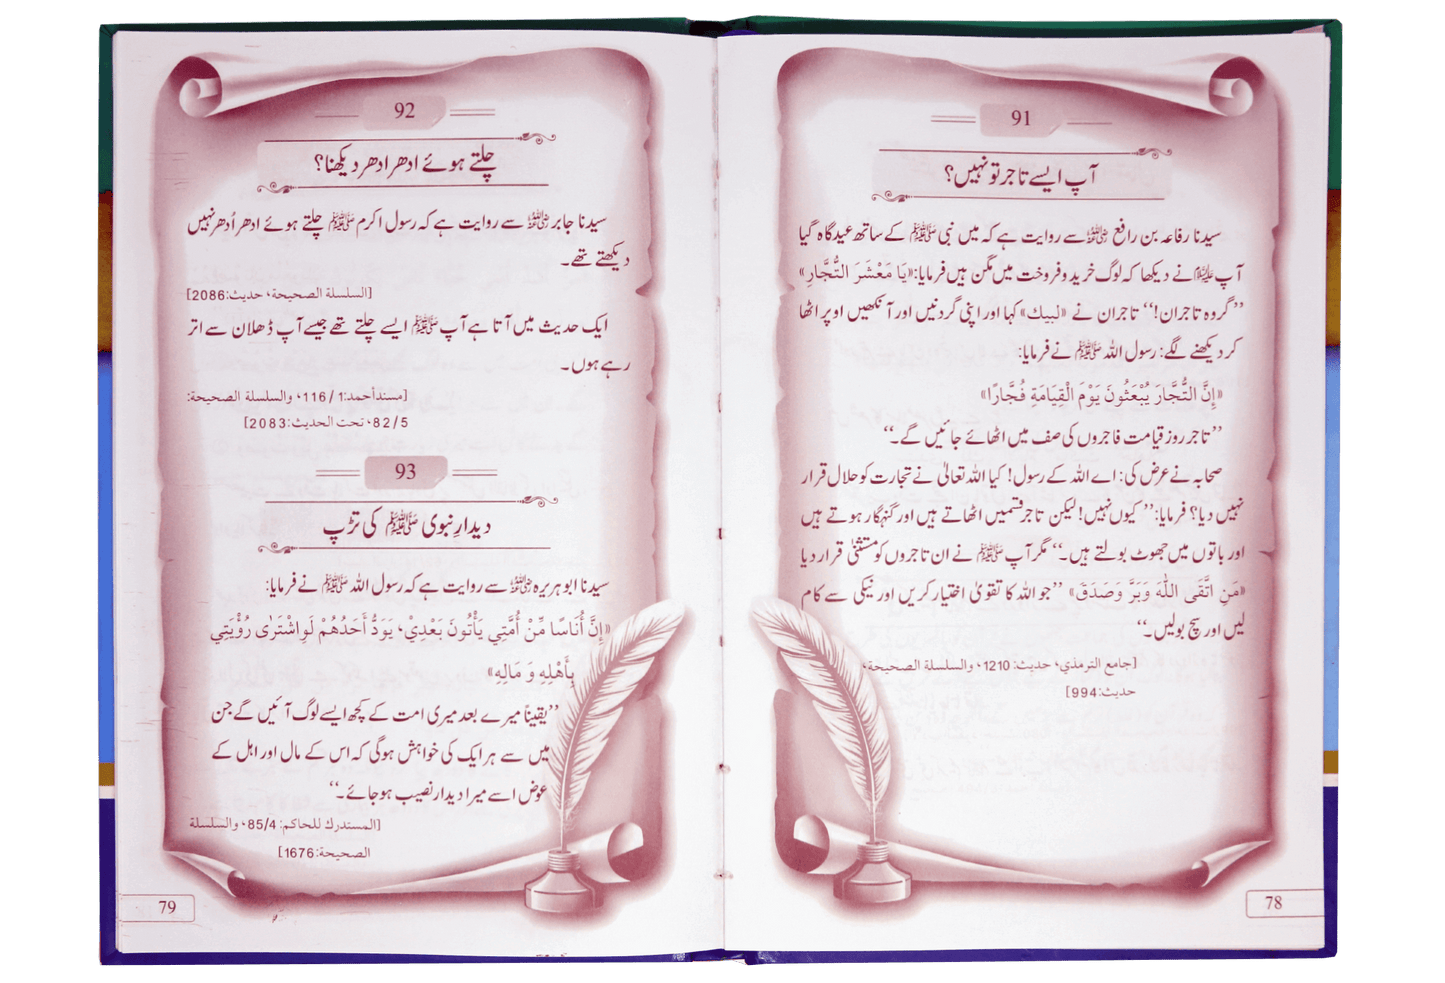 91
آپ ایسے تاجر تو نہیں؟
سیدنا رفاعہ بن رافع رضی اللہ عنہ سے روایت ہے کہ میں نبی ﷺ کے ساتھ عیدگاہ گیا
آپ ﷺ نے دیکھا کہ لوگ خرید و فروخت میں مگن ہیں فرمایا: «یَا مَعْشَرَ التُّجَّارِ»
’’گروہ تاجران!‘‘ تاجران نے «لبیك» کہا اور اپنی گردنیں اور آنکھیں اوپر اٹھا
کر دیکھنے لگے: رسول اللہ ﷺ نے فرمایا:
«إِنَّ التُّجَّارَ يُبْعَثُونَ يَوْمَ الْقِيَامَةِ فُجَّارًا»
’’تاجر روز قیامت فاجروں کی صف میں اٹھائے جائیں گے۔‘‘
صحابہ نے عرض کی: اے اللہ کے رسول! کیا اللہ تعالیٰ نے تجارت کو حلال قرار
نہیں دیا؟ فرمایا: ’’کیوں نہیں! لیکن تاجر قسمیں اٹھاتے ہیں اور گنہگار ہوتے ہیں
اور باتوں میں جھوٹ بولتے ہیں۔‘‘ مگر آپ ﷺ نے ان تاجروں کو مستثنیٰ قرار دیا
«مَنِ اتَّقَى اللّٰهَ وَبَرَّ وَصَدَقَ» ’’جو اللہ کا تقویٰ اختیار کریں اور نیکی سے کام
لیں اور سچ بولیں۔‘‘
[جامع الترمذي، حديث: 1210، والسلسلة الصحيحة،
حديث:994]
78
92
چلتے ہوئے ادھر ادھر دیکھنا؟
سیدنا جابر رضی اللہ عنہ سے روایت ہے کہ رسول اکرم ﷺ چلتے ہوئے ادھر اُدھر نہیں
دیکھتے تھے۔
[السلسلة الصحيحة، حديث:2086]
ایک حدیث میں آتا ہے آپ ﷺ ایسے چلتے تھے جیسے آپ ڈھلان سے اتر
رہے ہوں۔
[مسندأحمد:1/ 116، والسلسلة الصحيحة:
5/82، تحت الحديث:2083]
93
دیدارِ نبوی ﷺ کی تڑپ
سیدنا ابو ہریرہ رضی اللہ عنہ سے روایت ہے کہ رسول اللہ ﷺ نے فرمایا:
«إِنَّ أُنَاسًا مِّنْ أُمَّتِي يَأْتُونَ بَعْدِيْ، يَوَدُّ أَحَدُهُمْ لَوِاشْتَرٰى رُؤْيَتِي
بِأَهْلِهِ وَ مَالِهِ»
’’یقیناً میرے بعد میری امت کے کچھ ایسے لوگ آئیں گے جن
میں سے ہر ایک کی خواہش ہوگی کہ اس کے مال اور اہل کے
عوض اسے میرا دیدار نصیب ہوجائے۔‘‘
[المستدرك للحاكم: 85/4، والسلسلة
الصحيحة:1676]
79